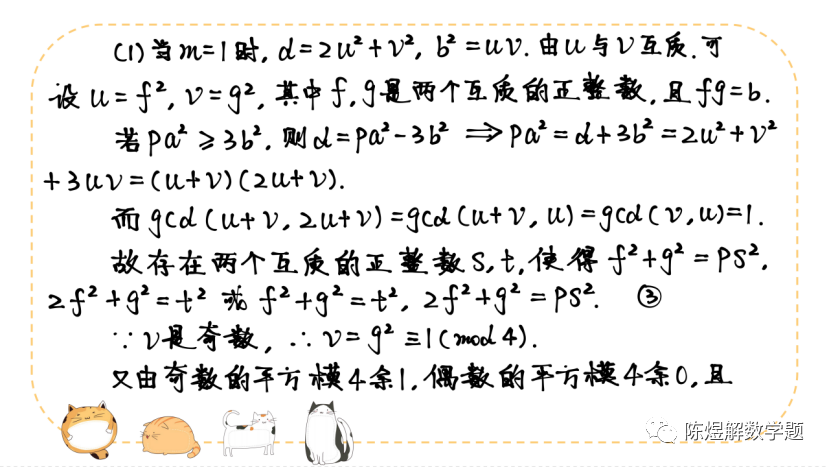 (1)当m=1时, d=2u²+v², b²=uv. 由u与v互质. 可
设 u=f², v=g², 其中f, g是两个互质的正整数, 且fg=b.
若pa²≥3b², 则d=pa²-3b² ⟹ pa²=d+3b²=2u²+v²
+3uv=(u+v)(2u+v).
而gcd(u+v, 2u+v)=gcd(u+v, u)=gcd(v, u)=1.
故存在两个互质的正整数s, t, 使得 f²+g²=ps²,
2f²+g²=t² 或 f²+g²=t², 2f²+g²=ps². ③
∵v是奇数, ∴v=g²≡1(mod4).
又由奇数的平方模4余1, 偶数的平方模4余0, 且
陈煜解数学题